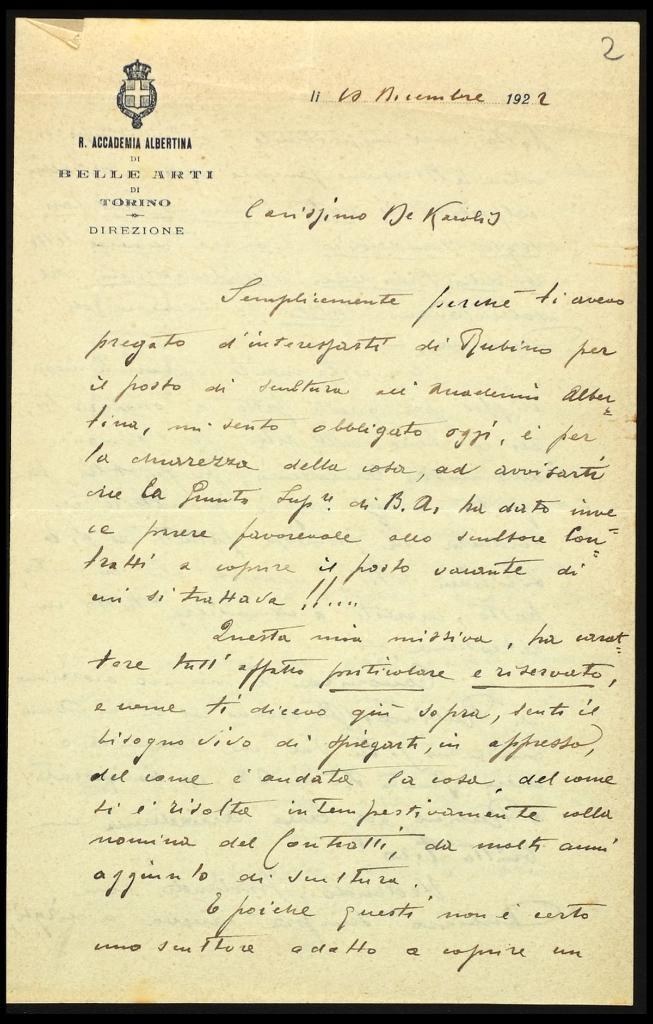 2
li 19 Dicembre 1922
R. ACCADEMIA ALBERTINA
DI
BELLE ARTI
DI
TORINO
DIREZIONE
Carissimo De Karolis
Semplicemente perché ti avevo
pregato d'interessarti di Rubino per
il posto di scultura all'Accademia Alber=
tina, mi sento obbligato oggi, e per
la chiarezza della cosa, ad avvisarti
che la Giunta Sup.re di B.A. ha dato inve=
ce parere favorevole allo scultore Con=
tratti a coprire il posto vacante di
cui si trattava !!....
Questa mia missiva, ha carat=
tere tutt'affatto particolare e riservato,
e come ti dicevo più sopra, sento il
bisogno vivo di spiegarti, in appresso,
del come è andata la cosa, del come
si è risolta intempestivamente colla
nomina del Contratti, da molti anni
aggiunto di scultura.
E poiché questi non è certo
uno scultore adatto a coprire un